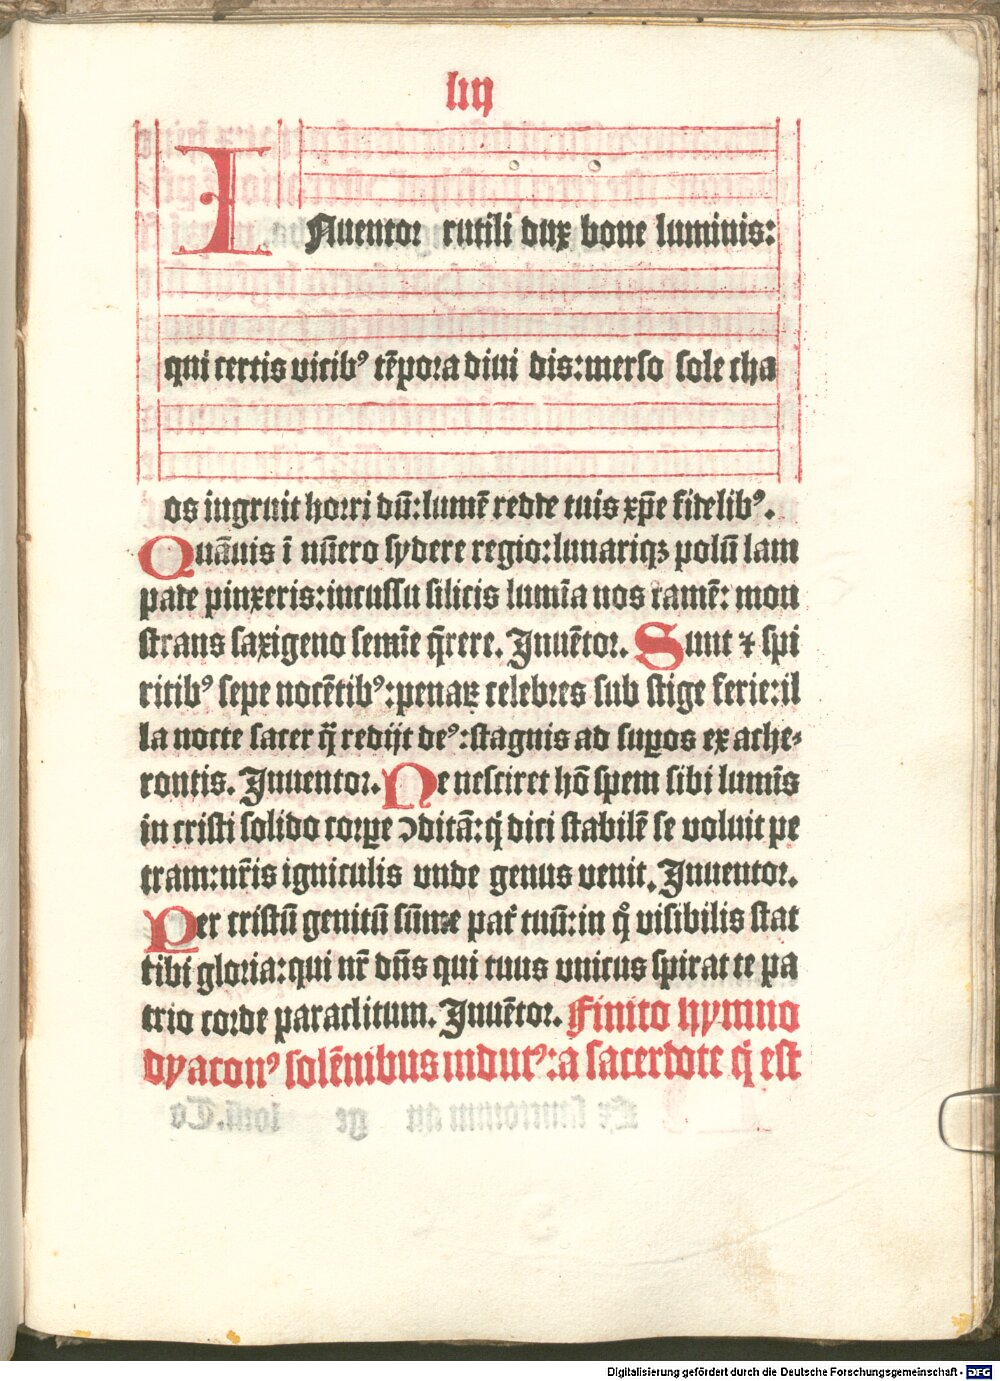 liij
INuentor rutili dux bone luminis:
qui certis vicibꝰ tēpora diui dis:merso sole cha
os ingruit horri dū:lumē redde tuis xp̄e fidelibꝰ.
Quāuis ī nūero sydere regio:lunariqꝫ polū lam
pade pinxeris:incussu silicis lumīa nos tamē: mon
strans saxigeno semīe q̄rere. Inuētor. Sunt ⁊ spi
ritibꝰ sepe nocētibꝰ:penaꝝ celebres sub stige ferie:il
la nocte sacer q̄ redijt deꝰ:stagnis ad suꝑos ex ache⸗
rontis. Inuentor. Ne nesciret hō spem sibi lumīs
in cristi solido corꝑe ↄditā:q̇ dici stabilē se voluit pe
tram:nr̄is igniculis vnde genus venit. Inuentor.
Per cristū genitū sūme pat̄ tuū:in q̊ visibilis stat
tibi gloria:qui nr̄ dn̄s qui tuus vnicus spirat te pa
trio corde paraclitum. Inuētor. Finito hymno
dyaconꝰ solēnibus indutꝰ:a sacerdote q̇ est
Digitalisierung gefördert durch die Deutsche Forschungsgemeinschaft - DFG